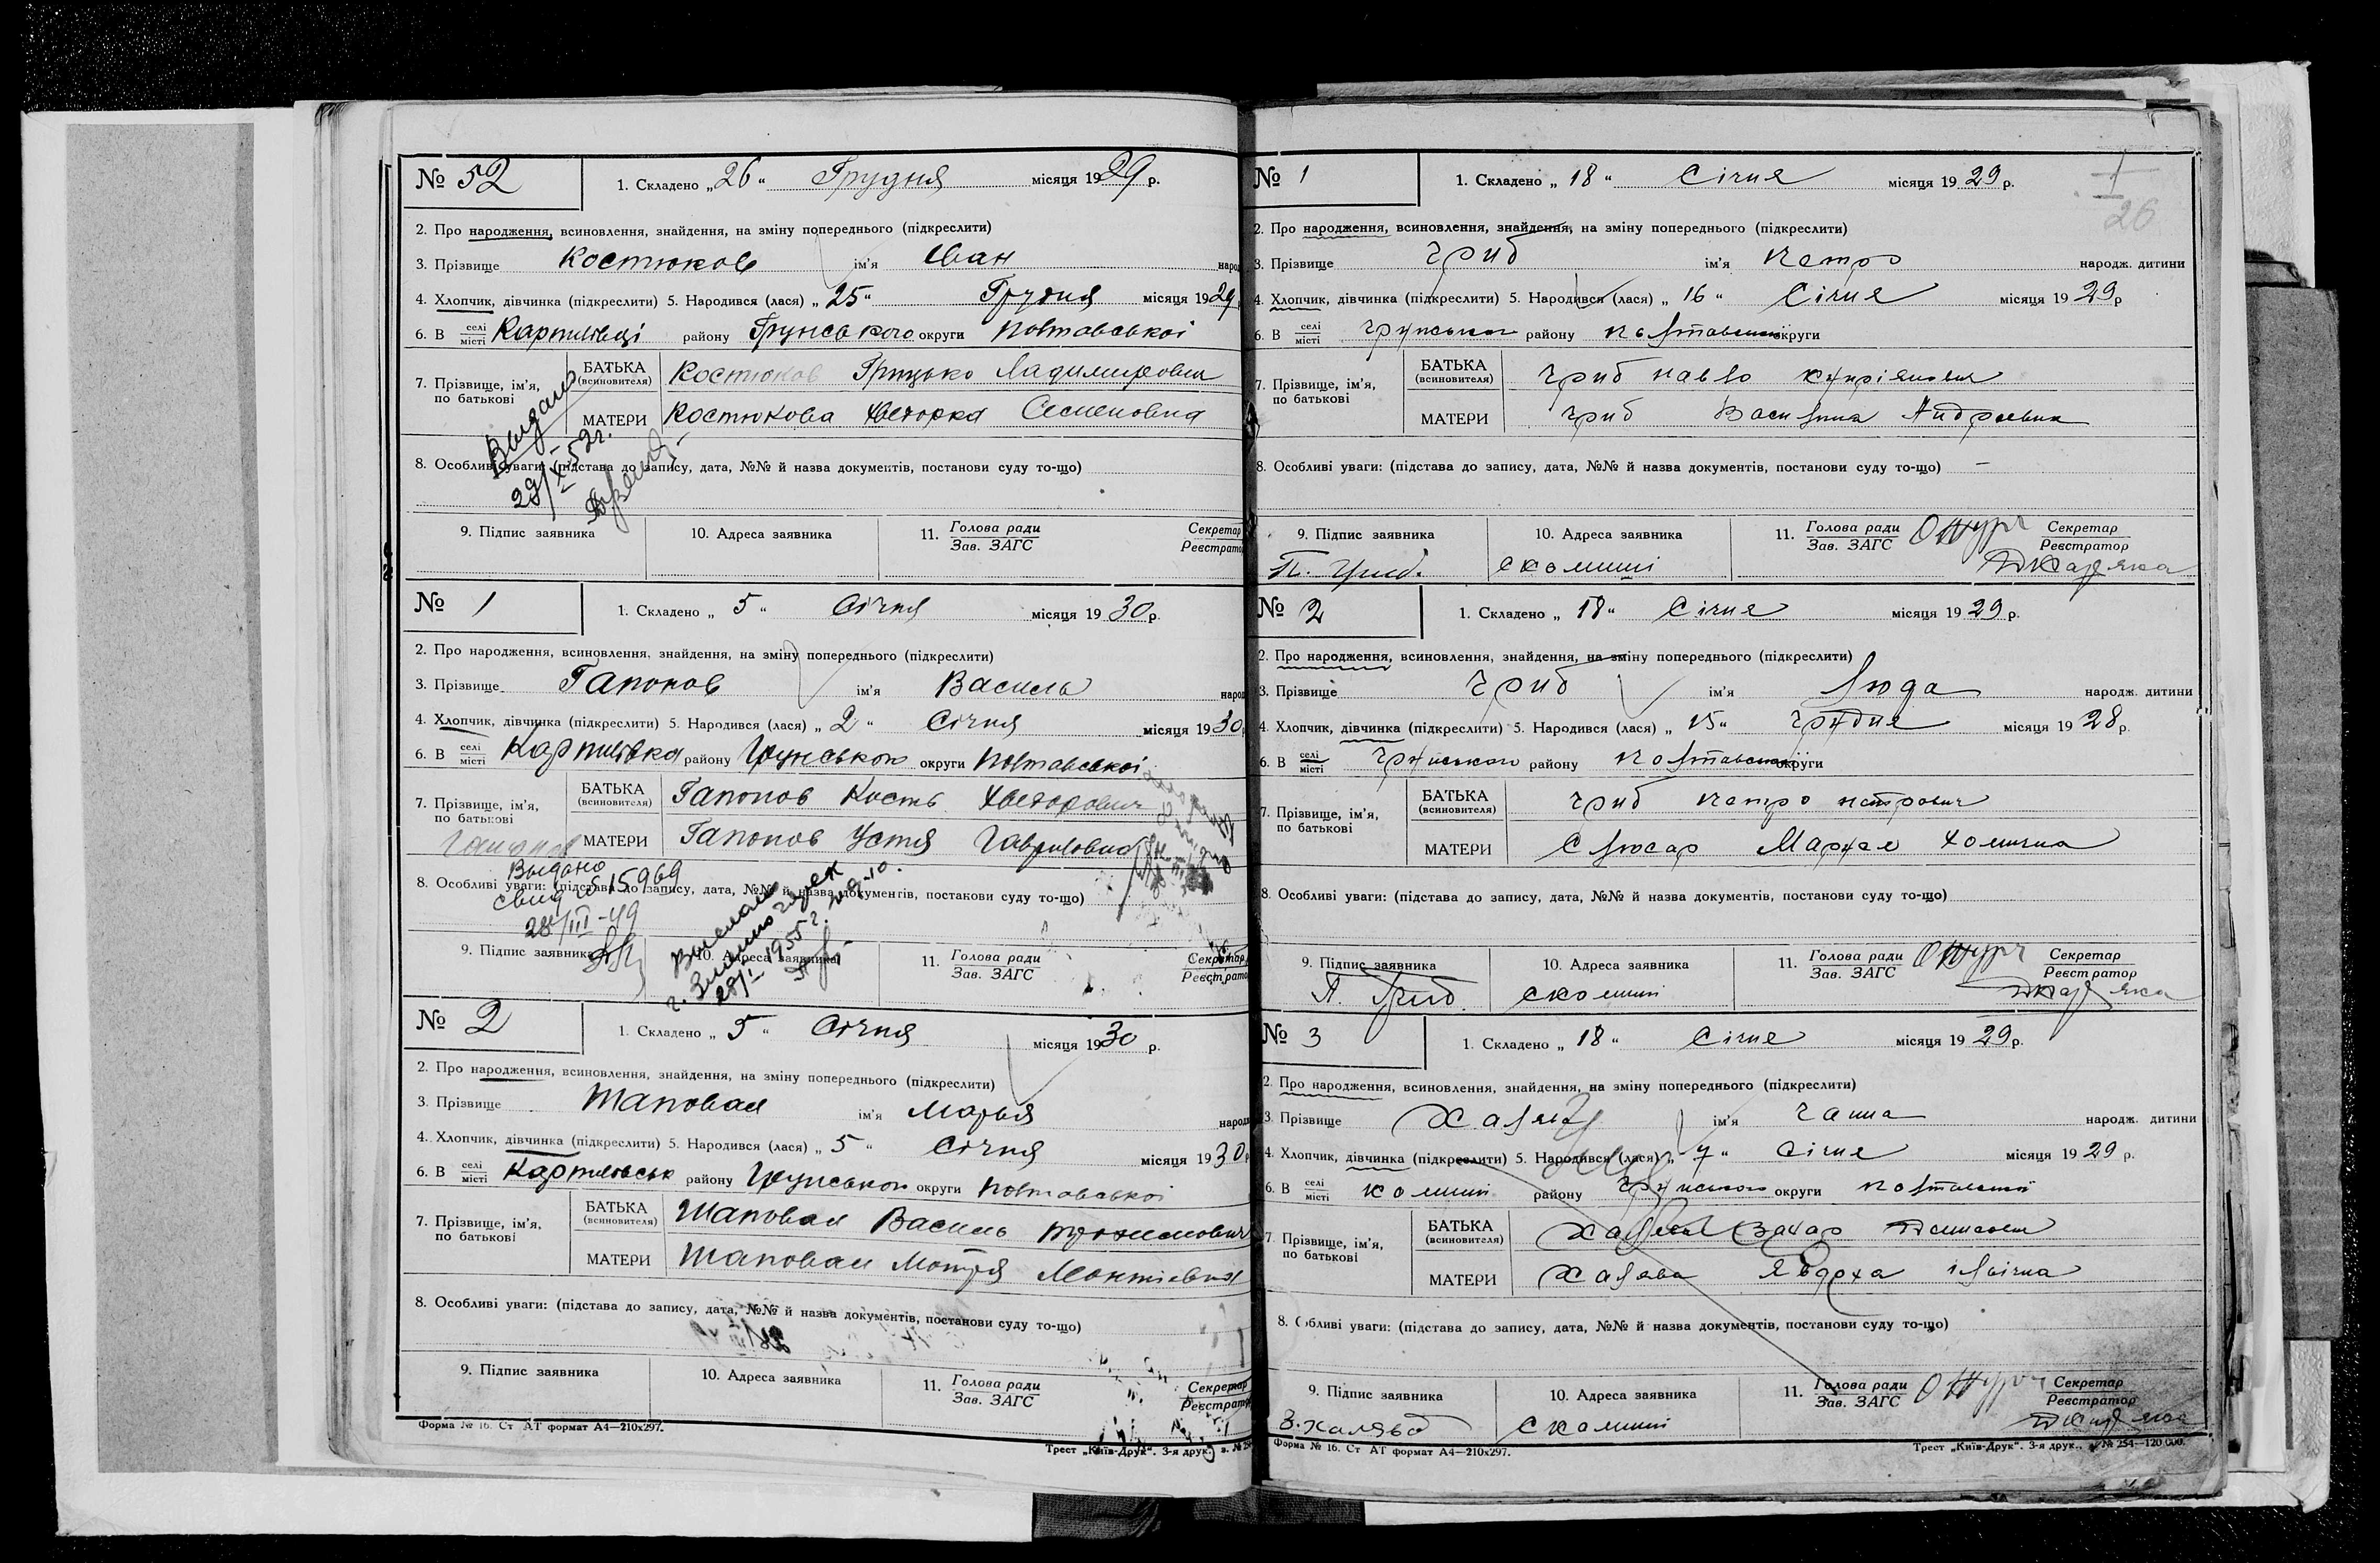 № 52
1. Складено „26“ Грудня місяця 1929 р.
2. Про народження, всиновлення, знайдення, на зміну попереднього (підкреслити)
3. Прізвище Костюков ім'я Іван народ
4. Хлопчик, дівчинка (підкреслити) 5. Народився (лася) „25“ Грудня місяця 1929
6. В селі місті Карпилівці району Грунського округи Полтавської
7. Прізвище, ім'я, по батькові
БАТЬКА (всиновителя) Костюков Грицько Ладимирович
МАТЕРИ Костюкова Хведорка Семеновна
Выдано
29/X-52г.
8. Особливі уваги: (підстава до запису, дата, №№ й назва документів, постанови суду то-що)
9. Підпис заявника 10. Адреса заявника 11. Голова ради Зав. ЗАГС Секретар Реєстрато
№ 1
1. Складено „5“ Січня місяця 1930 р.
2. Про народження, всиновлення, знайдення, на зміну попереднього (підкреслити)
3. Прізвище Гапонов ім'я Василь народ
4. Хлопчик, дівчинка (підкреслити) 5. Народився (лася) „2“ Січня місяця 1930
6. В селі місті Карпилівка району Грунськом округи Полтавської
7. Прізвище, ім'я, по батькові
БАТЬКА (всиновителя) Гапонов Кость Хведорович
МАТЕРИ Гапонов Устя Гавриловна
Выдано
свид 15969
28/III-49
8. Особливі уваги: (підстава до запису, дата, №№ й назва документів, постанови суду то-що)
28/I 1955 г.
9. Підпис заявника 10. Адреса заявника 11. Голова ради Зав. ЗАГС Секретар Реєстрато
№ 2
1. Складено „5“ Січня місяця 1930 р.
2. Про народження, всиновлення, знайдення, на зміну попереднього (підкреслити)
3. Прізвище Шаповал ім'я Марья народ
4. Хлопчик, дівчинка (підкреслити) 5. Народився (лася) „5“ Січня місяця 1930
6. В селі місті Карпиловськ району Грунськом округи Полтавської
7. Прізвище, ім'я, по батькові
БАТЬКА (всиновителя) Шаповал Василь
МАТЕРИ Шаповал Мотря
8. Особливі уваги: (підстава до запису, дата, №№ й назва документів, постанови суду то-що)
9. Підпис заявника 10. Адреса заявника 11. Голова ради Зав. ЗАГС Секретар Реєстрато
Форма № 16. Ст АТ формат А4—210x297.
Трест „Київ-Друк“. 3-я друк.
№ 1
1. Складено „18“ Січня місяця 1929 р.
26
2. Про народження, всиновлення, знайдення, на зміну попереднього (підкреслити)
3. Прізвище Гриб ім'я Петро народж. дитини
4. Хлопчик, дівчинка (підкреслити) 5. Народився (лася) „16“ Січня місяця 1929 р
6. В селі місті Грунського району Полтавської округи
7. Прізвище, ім'я, по батькові
БАТЬКА (всиновителя) Гриб Павло Купріянович
МАТЕРИ Гриб Василина Андреевна
8. Особливі уваги: (підстава до запису, дата, №№ й назва документів, постанови суду то-що) —
9. Підпис заявника 10. Адреса заявника 11. Голова ради Зав. ЗАГС Секретар Реєстратор
П. Гриб. с Комиші
№ 2
1. Складено „18“ Січня місяця 1929 р.
2. Про народження, всиновлення, знайдення, на зміну попереднього (підкреслити)
3. Прізвище Гриб ім'я Люда народж. дитини
4. Хлопчик, дівчинка (підкреслити) 5. Народився (лася) „15“ Грудня місяця 1928 р.
6. В селі місті Грунського району Полтавської округи
7. Прізвище, ім'я, по батькові
БАТЬКА (всиновителя) Гриб Петро Петрович
МАТЕРИ Слюсар Хомична
8. Особливі уваги: (підстава до запису, дата, №№ й назва документів, постанови суду то-що)
9. Підпис заявника 10. Адреса заявника 11. Голова ради Зав. ЗАГС Секретар Реєстратор
П. Гриб с Комиші
№ 3
1. Складено „18“ Січня місяця 1929 р.
2. Про народження, всиновлення, знайдення, на зміну попереднього (підкреслити)
3. Прізвище Халява ім'я Ганна народж. дитини
4. Хлопчик, дівчинка (підкреслити) 5. Народився (лася) „7“ Січня місяця 1929 р.
6. В селі місті Комиші району Грунського округи Полтавської
7. Прізвище, ім'я, по батькові
БАТЬКА (всиновителя) Халява Захар Денисович
МАТЕРИ Халява Явдоха Ільїчна
8. Особливі уваги: (підстава до запису, дата, №№ й назва документів, постанови суду то-що)
9. Підпис заявника 10. Адреса заявника 11. Голова ради Зав. ЗАГС Секретар Реєстратор
З. Халява с Комиші
Форма № 16. Ст АТ формат А4—210x297.
Трест „Київ-Друк“. 3-я друк., з. № 254—120.000.